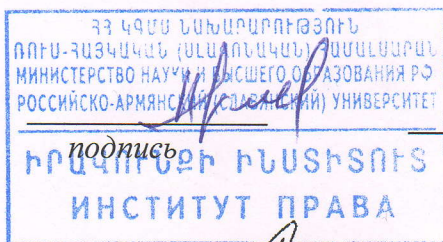 ՀՀ ԿԳՄՍ ՆԱԽԱՐԱՐՈՒԹՅՈՒՆ
ՌՈՒՍ-ՀԱՅԿԱԿԱՆ (ՍԼԱՎՈՆԱԿԱՆ) ՀԱՄԱԼՍԱՐԱՆ
МИНИСТЕРСТВО НАУКИ И ВЫСШЕГО ОБРАЗОВАНИЯ РФ
РОССИЙСКО-АРМЯНСКИЙ (СЛАВЯНСКИЙ) УНИВЕРСИТЕТ
подпись
ԻՐԱՎՈՒՆՔԻ ԻՆՍՏԻՏՈՒՏ
ИНСТИТУТ ПРАВА